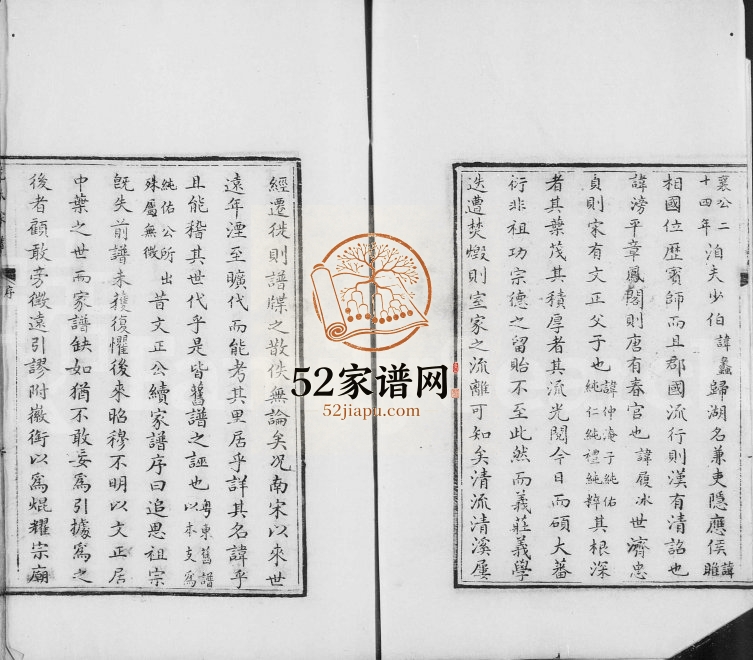 襄公二
十四年
洎夫少伯諱蠡歸湖名兼吏隱應侯諱睢
相國位歷賓師而且郡國流行則漢有清詔也
諱滂平章鳳閣則唐有春官也諱履冰世濟忠
貞則宋有文正父子也諱仲淹子純佑
純仁純禮純粹其根深
者其葉茂其積厚者其流光閱今日而碩大蕃
衍非祖功宗德之留貽不至此然而義莊義學
迭遭焚燬則室家之流離可知矣清流清溪屢
經遷徙則譜牒之散佚無論矣况南宋以來世
遠年湮至曠代而能考其里居乎詳其名諱乎
且能稽其世代乎是皆舊譜之誣也粤東舊譜
以本支爲
純佑公所出
殊屬無徴昔文正公續家譜序曰追思祖宗
既失前譜未獲復懼後來昭穆不明以文正居
中葉之世而家譜缺如猶不敢妄爲引據爲之
後者顧敢旁徴遠引謬附徽銜以爲焜耀宗廟
序
52家谱网
52jiapu.com